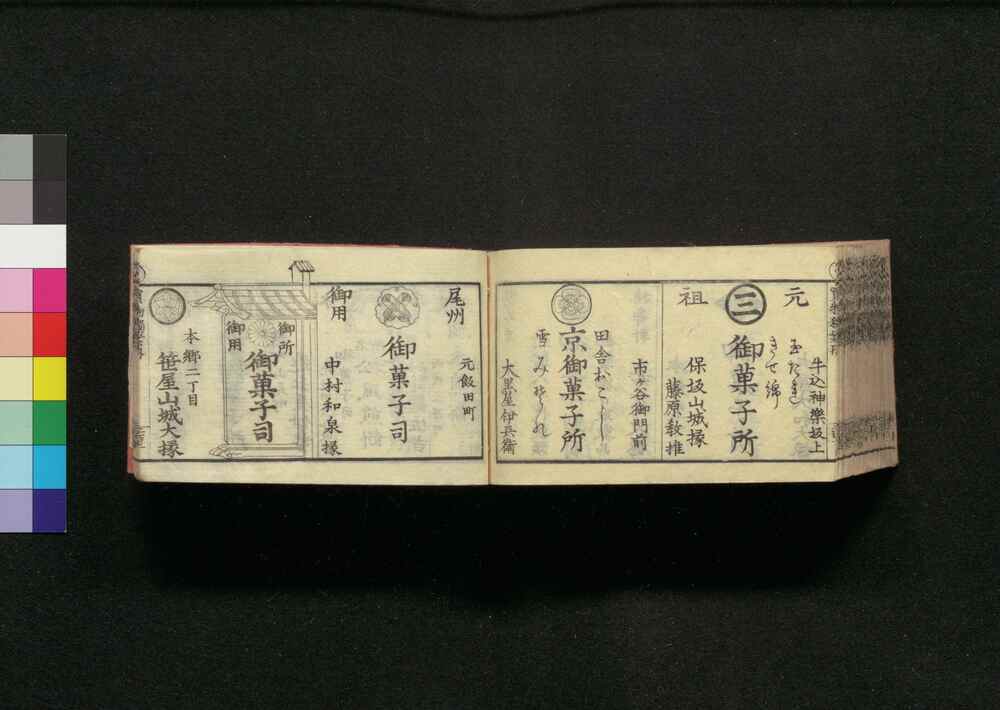 牛込神樂坂上
元
祖
玉だれ
きせ綿
㊂
御菓子所
保坂山城掾
藤原敎推
市ヶ谷御門前
田舎おこし
京御菓子所
雪みぞれ
大黒屋伊兵衛
元飯田町
尾州
御用
御菓子司
中村和泉掾
御所
御用
御菓子司
本郷二丁目
笹屋山城大掾